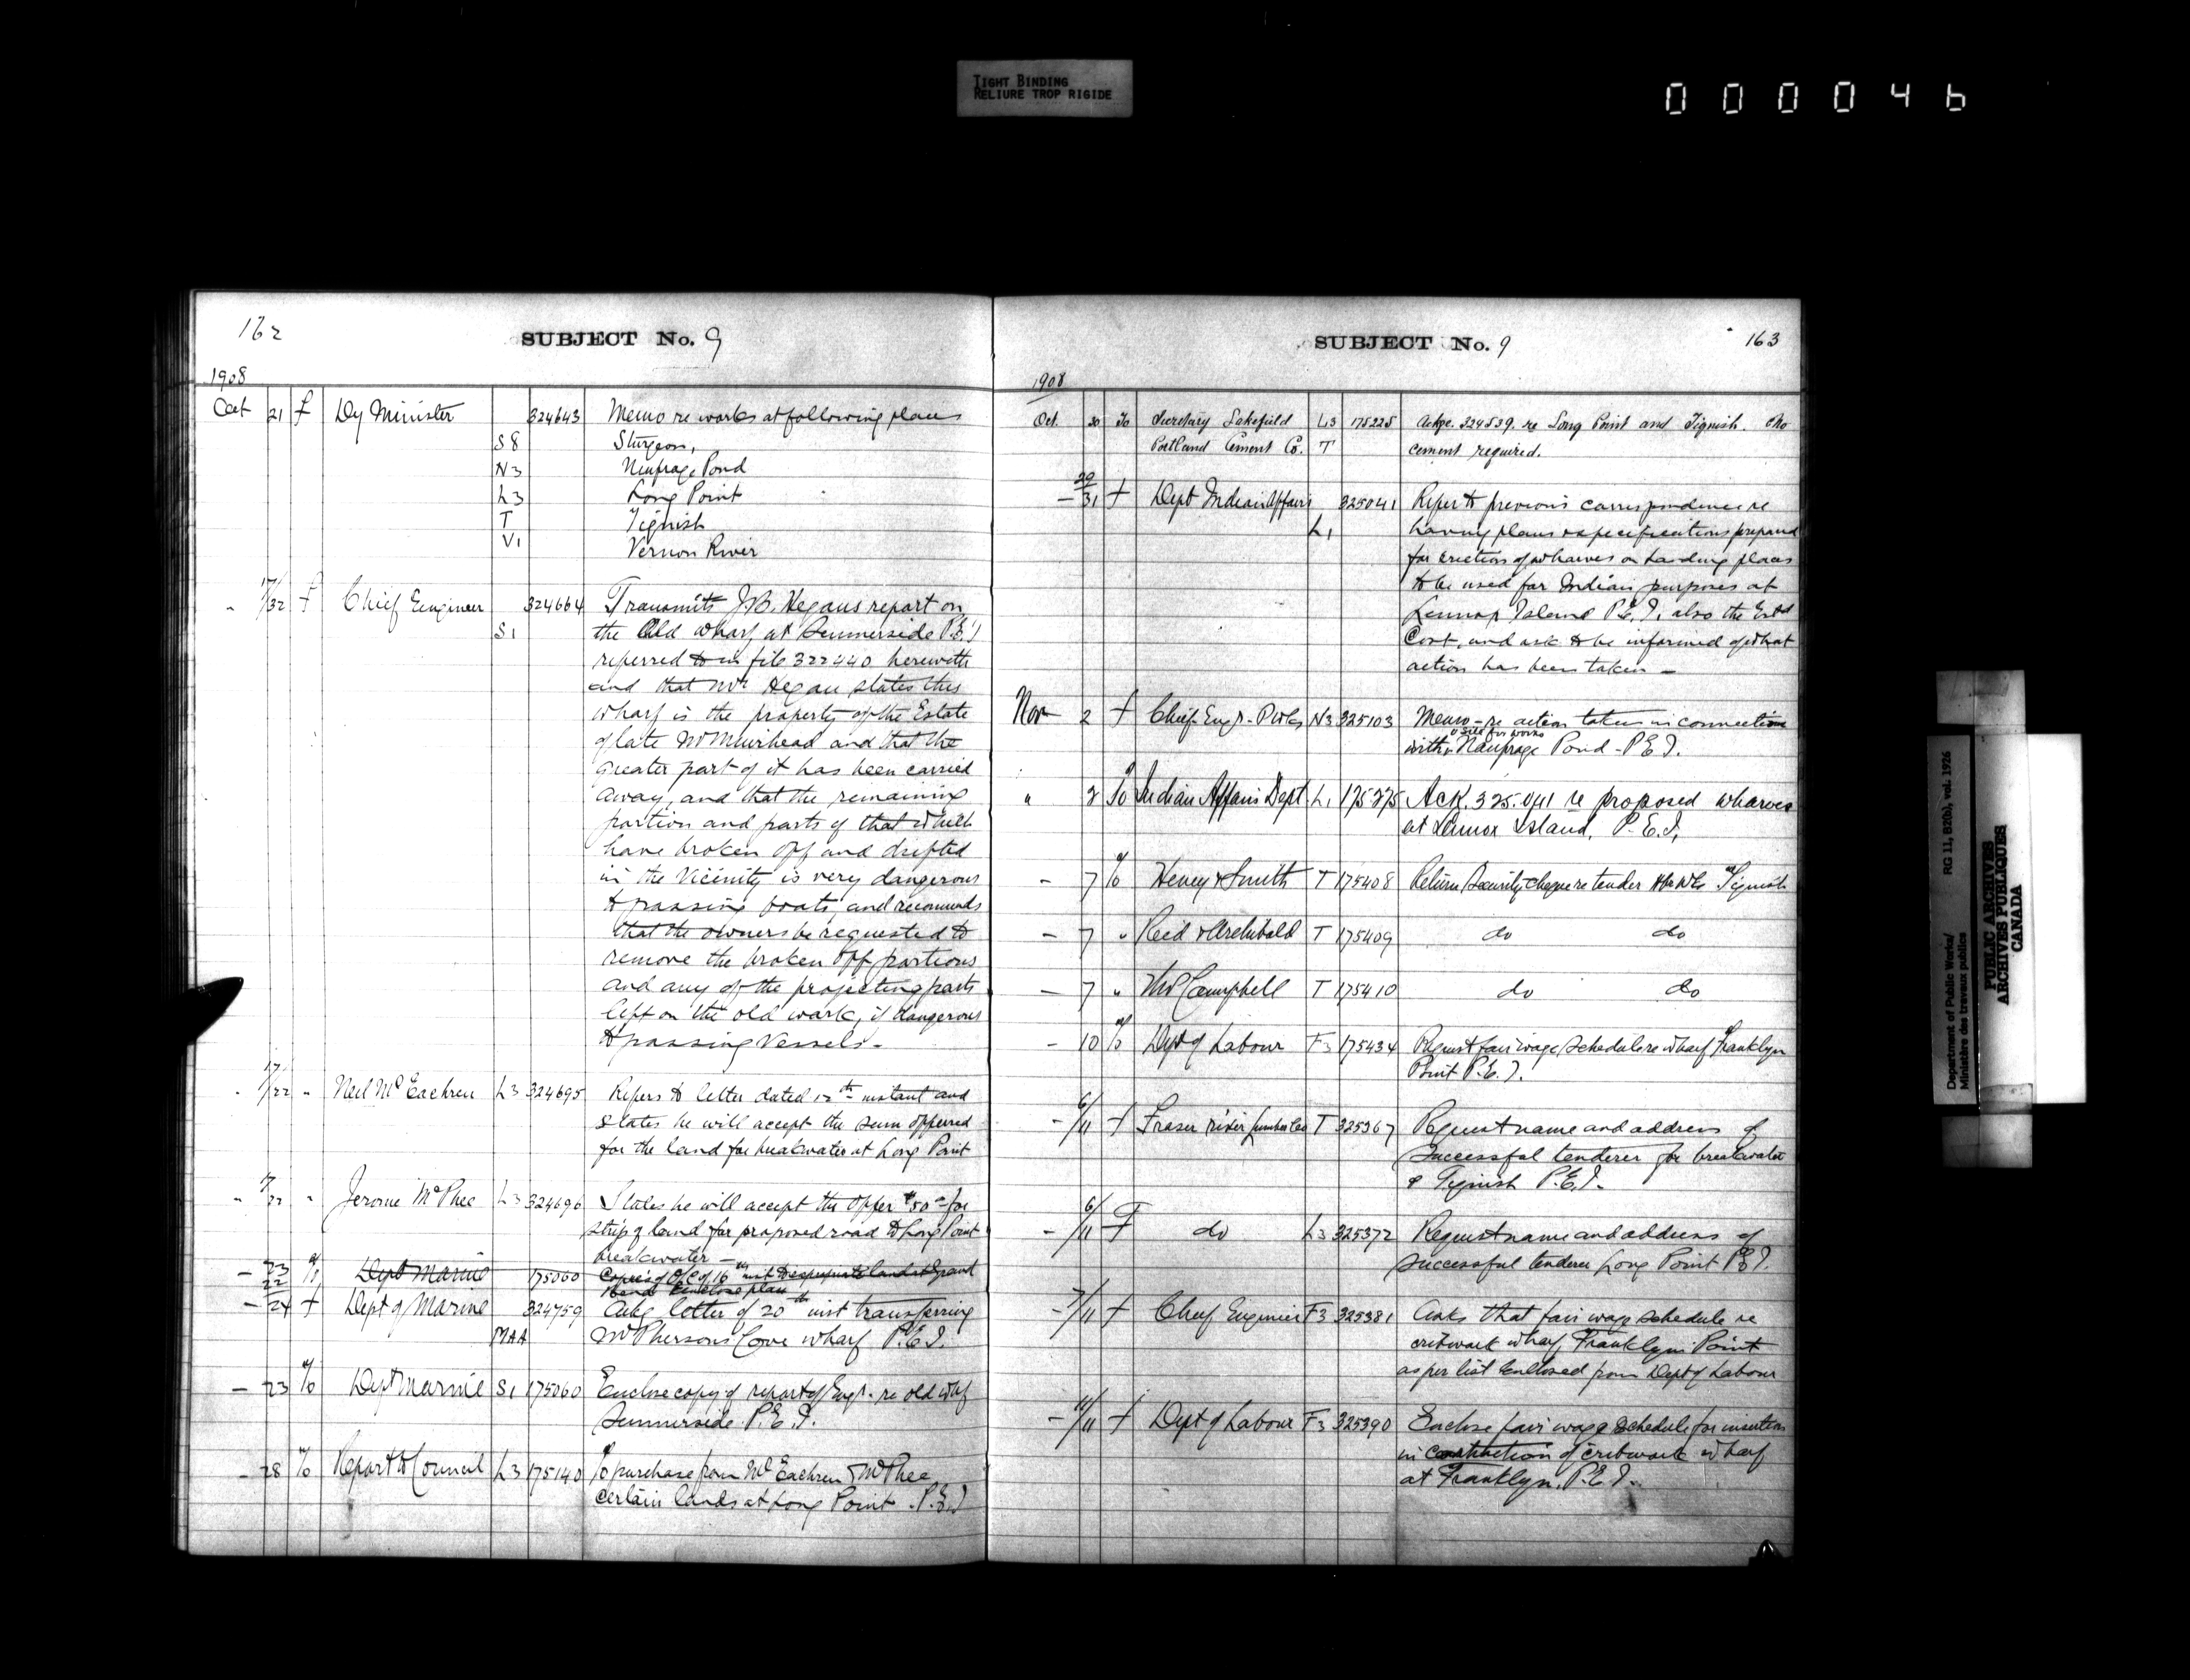 TIGHT BINDING
RELIURE TROP RIGIDE
000046
162
SUBJECT No. 9
1908
Oct 21 f Dy Minister 324643 Memo re works at following places
S8 Sturgeon,
N3 Naufrage Pond
L3 Long Point
T Tignish
V1 Vernon River
" 17/22 f Chief Engineer 324664 Transmits J.B. Hegans report on
S1 the Old Wharf at Summerside P.E.I
referred to in file 322440 herewith
and that Mr Hegan states this
Wharf is the property of the Estate
of late Mr Muirhead and that the
greater part of it has been carried
away, and that the remaining
portion and parts of that which
have broken off and drifted
in the Vicinity is very dangerous
to passing boats, and recommends
that the owners be requested to
remove the broken off portions
and any of the projecting parts
left on the old work, if dangerous
to passing Vessels -
" 17/22 " Neil McEachren L3 324695 Refers to letter dated 12th instant and
states he will accept the sum offerred
for the land for breakwater at Long Point
" 22 " Jerome McPhee L3 324696 States he will accept the offer $50 - for
strip of land for proposed road to Long Point
breakwater -
Dept Marine 175060 Copies of O/C of 16th inst
- 24 f Dept of Marine 324759 Ackg letter of 20th inst transferring
MAA McPhersons Cove wharf P.E.I.
- 23 To Dept Marine S1 175060 Enclose copy of report of Engr. re old whf
Summerside P.E.I.
- 28 To Report to Council L3 175140 To purchase from McEachren & McPhee
certain lands at Long Point P.E.I
SUBJECT No. 9
163
1908
Oct. 30 To Secretary Lakefield L3 175225 Ackge. 324539. re Long Point and Tignish. No
Portland Cement Co. T cement required.
- 29/31 f Dept Indian Affairs 325041 Refer to previous correspondence re
L1 having plans & specifications prepared
for erection of wharves on landing places
to be used for Indian purposes at
Lennox Island P.E.I. also the Estd
Cost, and ask to be informed of what
action has been taken -
Nov 2 f Chief Engr. P Wks N3 325103 Memo - re action taken in connection
& site for works
with Naufrage Pond - P.E.I.
" 2 To Indian Affairs Dept L1 175275 Ack. 325.041 re proposed wharves
at Lennox Island, P.E.I,
- 7 To Heney & Smith T 175408 Return Security cheque re tender Hbr Wks Tignish
- 7 " Reid & Archibald T 175409 do do
- 7 " Campbell T 175410 do do
- 10 To Dept of Labour F3 175434 Request fair wage schedule re wharf Franklyn
Point P.E.I.
- 6/11 f Fraser river Lumber Co T 325367 Request name and address of
Successful tenderer for breakwater
& Tignish P.E.I.
- 6/11 f do L3 325372 Request name and address of
Successful tenderer Long Point P.E.I.
- 7/11 f Chief Engineer F3 325381 Asks that fair wage schedule re
cribwork wharf Franklyn Point
as per list enclosed from Dept of Labour
- 11/11 f Dept of Labour F3 325390 Enclose fair wage schedule for insertion
in construction of cribwork wharf
at Franklyn. P.E.I.
Department of Public Works/ RG 11, B2(b), vol. 1926
Ministère des travaux publics
PUBLIC ARCHIVES
ARCHIVES PUBLIQUES
CANADA